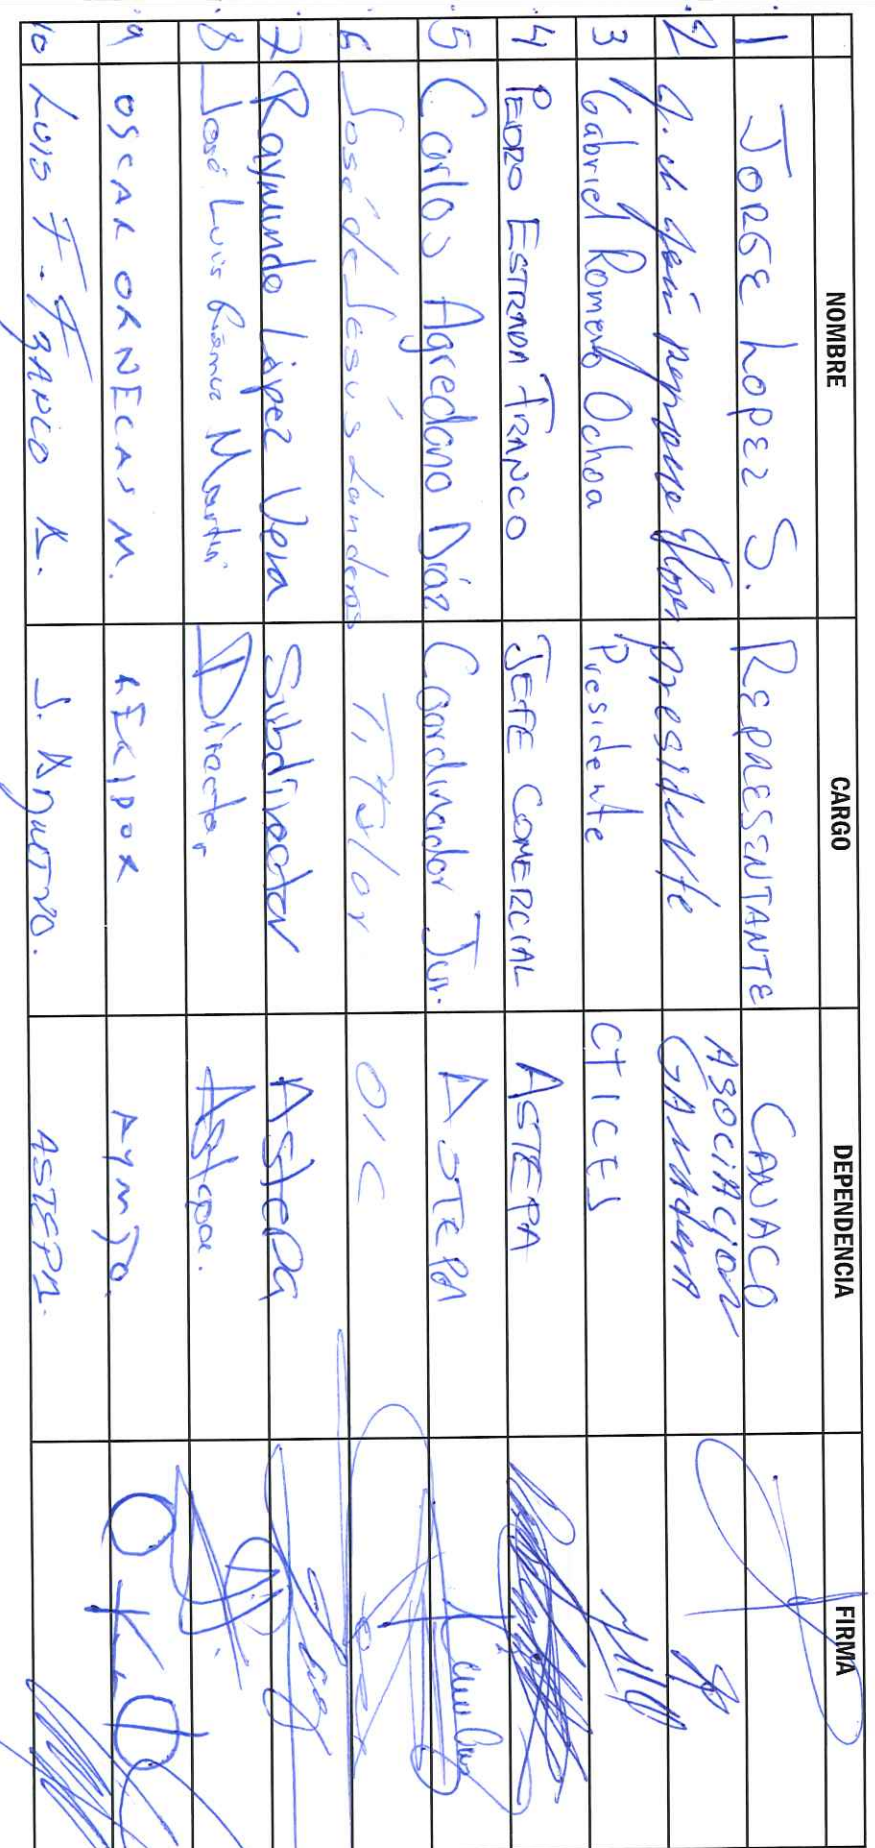 NOMBRE CARGO DEPENDENCIA FIRMA
1 JORGE LOPEZ S. REPRESENTANTE CANACO
2 presidente ASOCIACION GANADERA
3 Gabriel Romero Ochoa Presidente CTICES
4 PEDRO ESTRADA FRANCO JEFE COMERCIAL ASTEPA
5 Carlos Agredano Diáz Coordinador Jur. ASTEPA
6 José de Jesús Landeros Titular OIC
7 Raymundo López Vera Subdirector Astepa
8 José Luis Martín Director Astepa.
9 OSCAR ORNELAS M. REGIDOR AYMTO.
10 LUIS F. FRANCO R. ASTEPA.